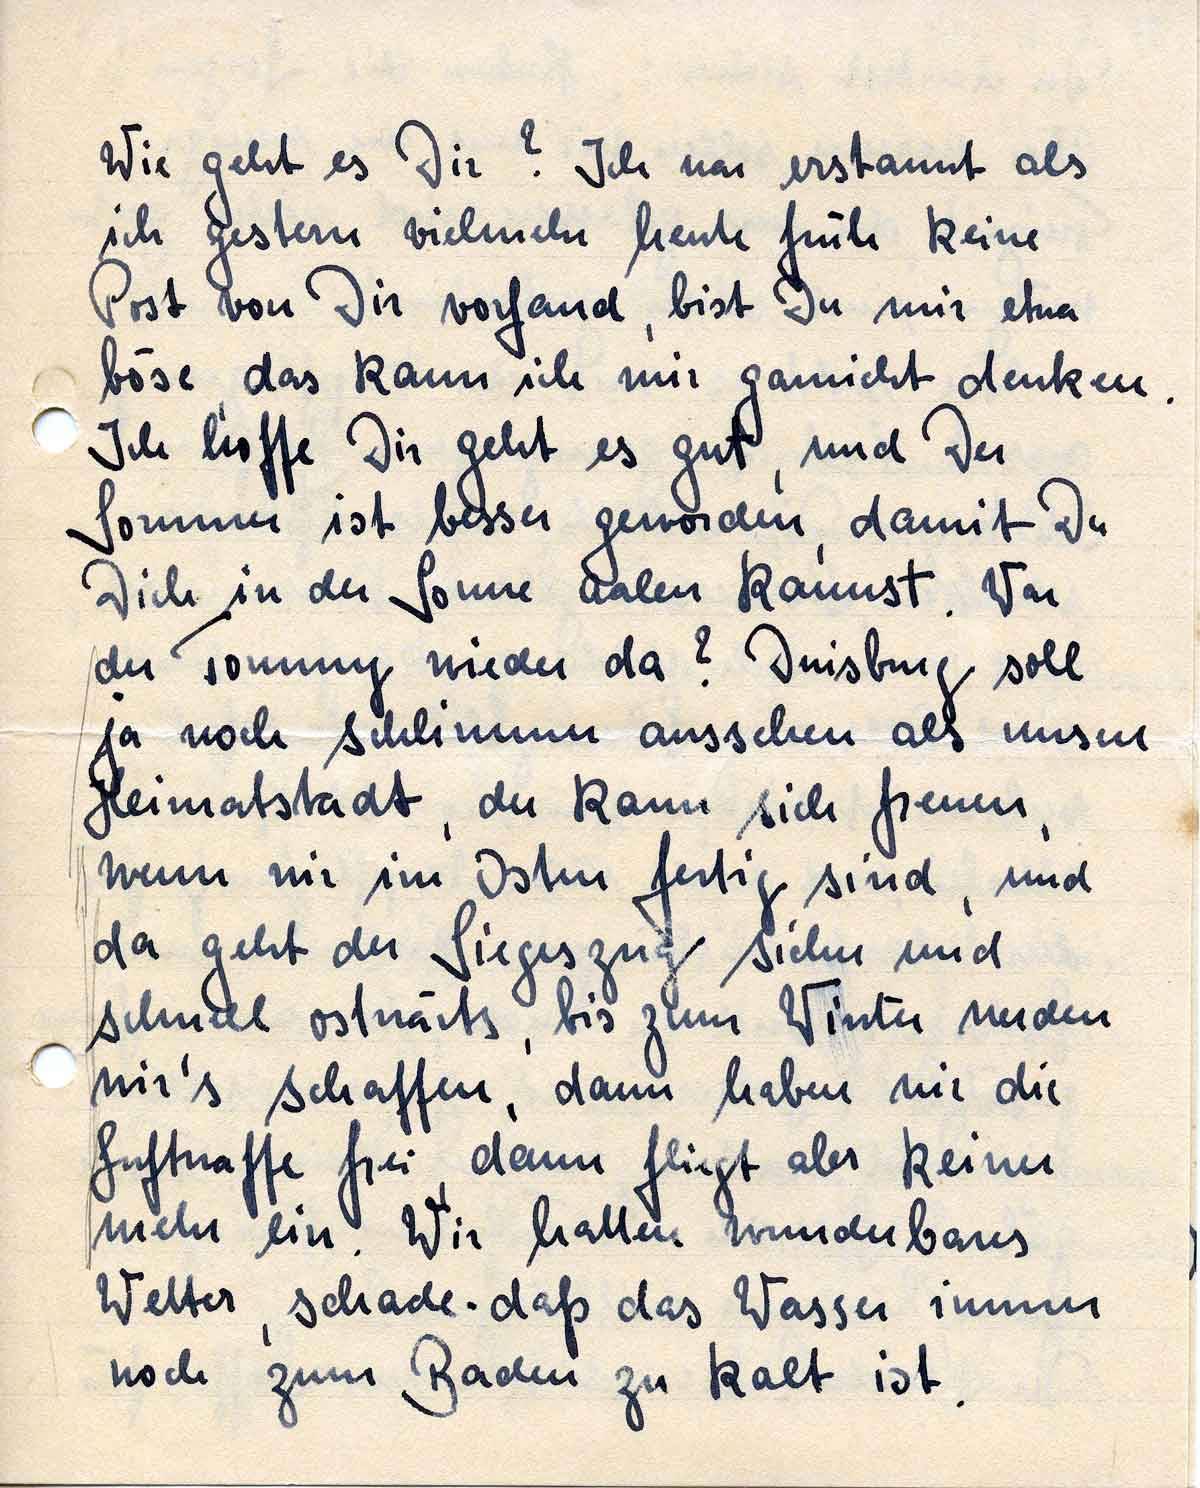 Wie geht es Dir? Ich war erstaunt als
ich gestern vielmehr heute früh keine
Post von Dir vorfand, bist Du mir etwa
böse, das kann ich mir garnicht denken.
Ich hoffe Dir geht es gut, und Der
Sommer ist besser geworden, damit Du
Dich in der Sonne aalen kannst. War
der Tommy wieder da? Duisburg soll
ja noch schlimmer aussehen als unsere
Heimatstadt, der kann sich freuen,
wenn wir im Osten fertig sind, und
da geht der Siegeszug sicher und
schnell ostwärts, bis zum Winter werden
wir's schaffen, dann haben wir die
Luftwaffe frei, dann fliegt aber keiner
mehr ein. Wir hatten wunderbares
Wetter, schade daß das Wasser immer
noch zum Baden zu kalt ist.